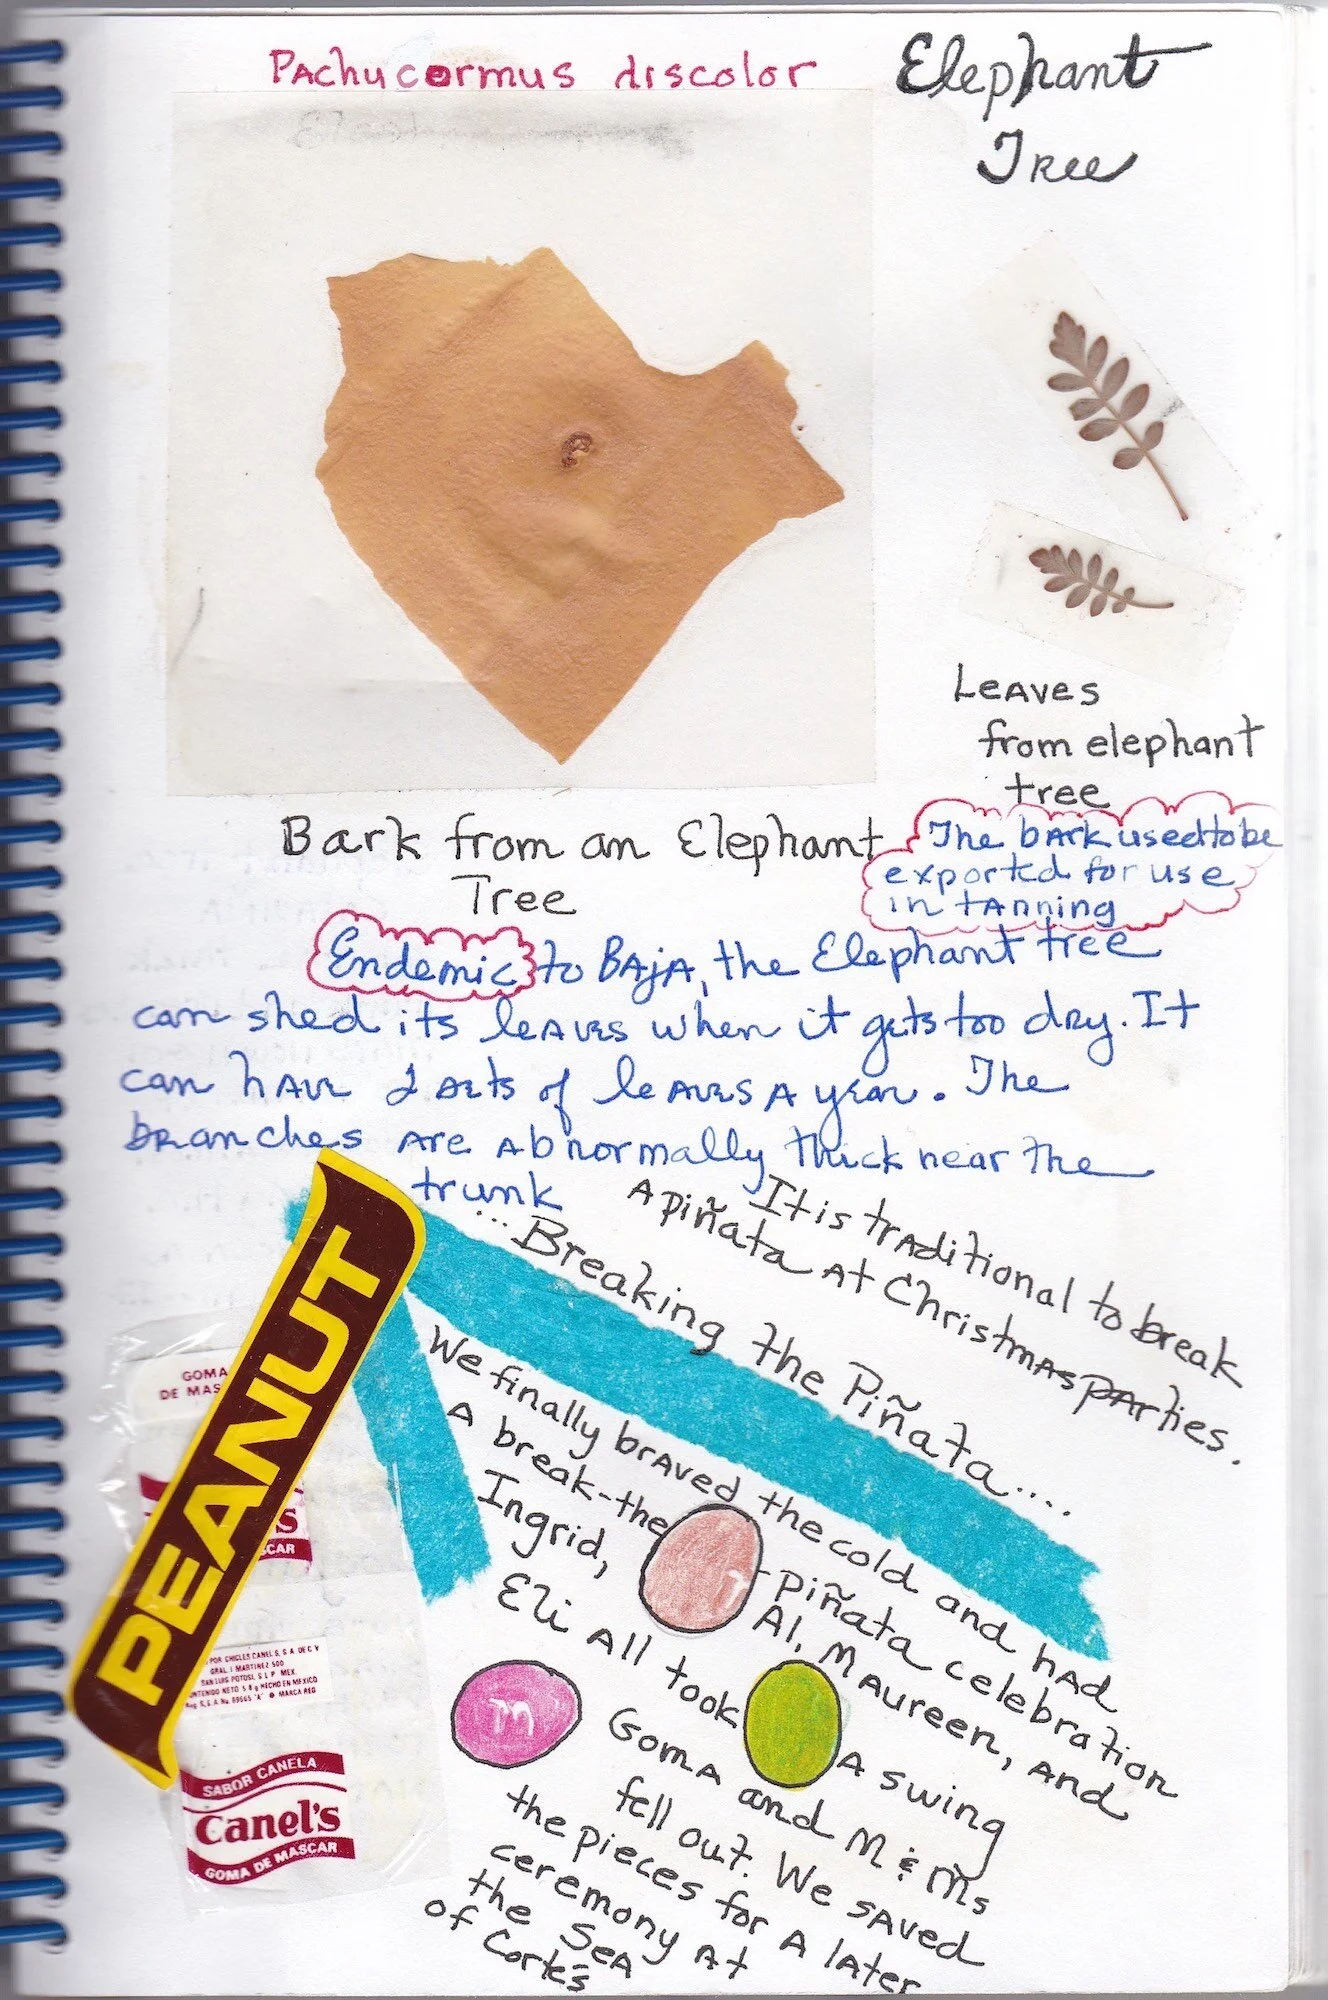 Pachycormus discolor
Elephant
Tree
Leaves
from elephant
tree
Bark from an Elephant
Tree
The bark used to be
exported for use
in tanning
Endemic to Baja, the Elephant tree
can shed its leaves when it gets too dry. It
can have 2 sets of leaves a year. The
branches are abnormally thick near the
trunk
It is traditional to break
a piñata at Christmas parties.
...Breaking the Piñata....
We finally braved the cold and had
a break-the-piñata celebration
Ingrid, Al, Maureen, and
Eli all took a swing
Goma and M & Ms
fell out. We saved
the pieces for a later
ceremony at
the Sea
of Cortés
m
PEANUT
GOMA
DE MAS
S
SCAR
POR CHICLES CANEL'S, S.A. DE C.V.
GRAL. I. MARTINEZ 500
SAN LUIS POTOSI, S.L.P. MEX.
CONTENIDO NETO 5.8 g HECHO EN MEXICO
Reg. S.S.A. No. 89665 "A" ® MARCA REG
SABOR CANELA
Canel's
GOMA DE MASCAR